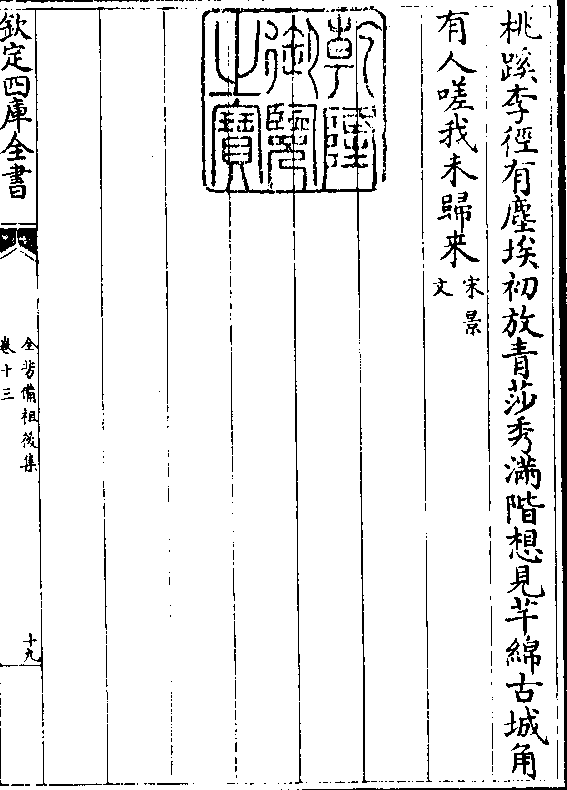 桃蹊李徑有塵埃初放青莎秀滿階想見芊綿古城角
有人嗟我未歸来
宋景
文
乾隆
御覽
之寶
欽定四庫全書
全芳備祖後集
卷十三
十九